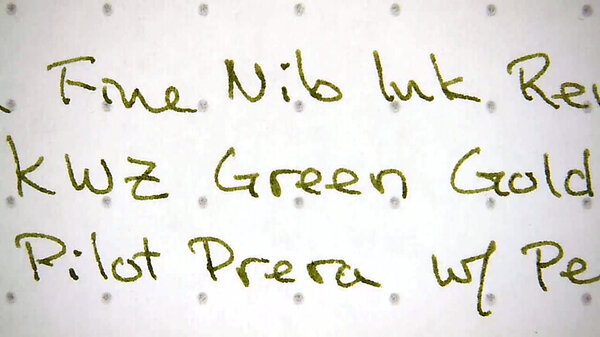 Fine Nib Ink Re
KWZ Green Gold
Pilot Prera w/ Pe